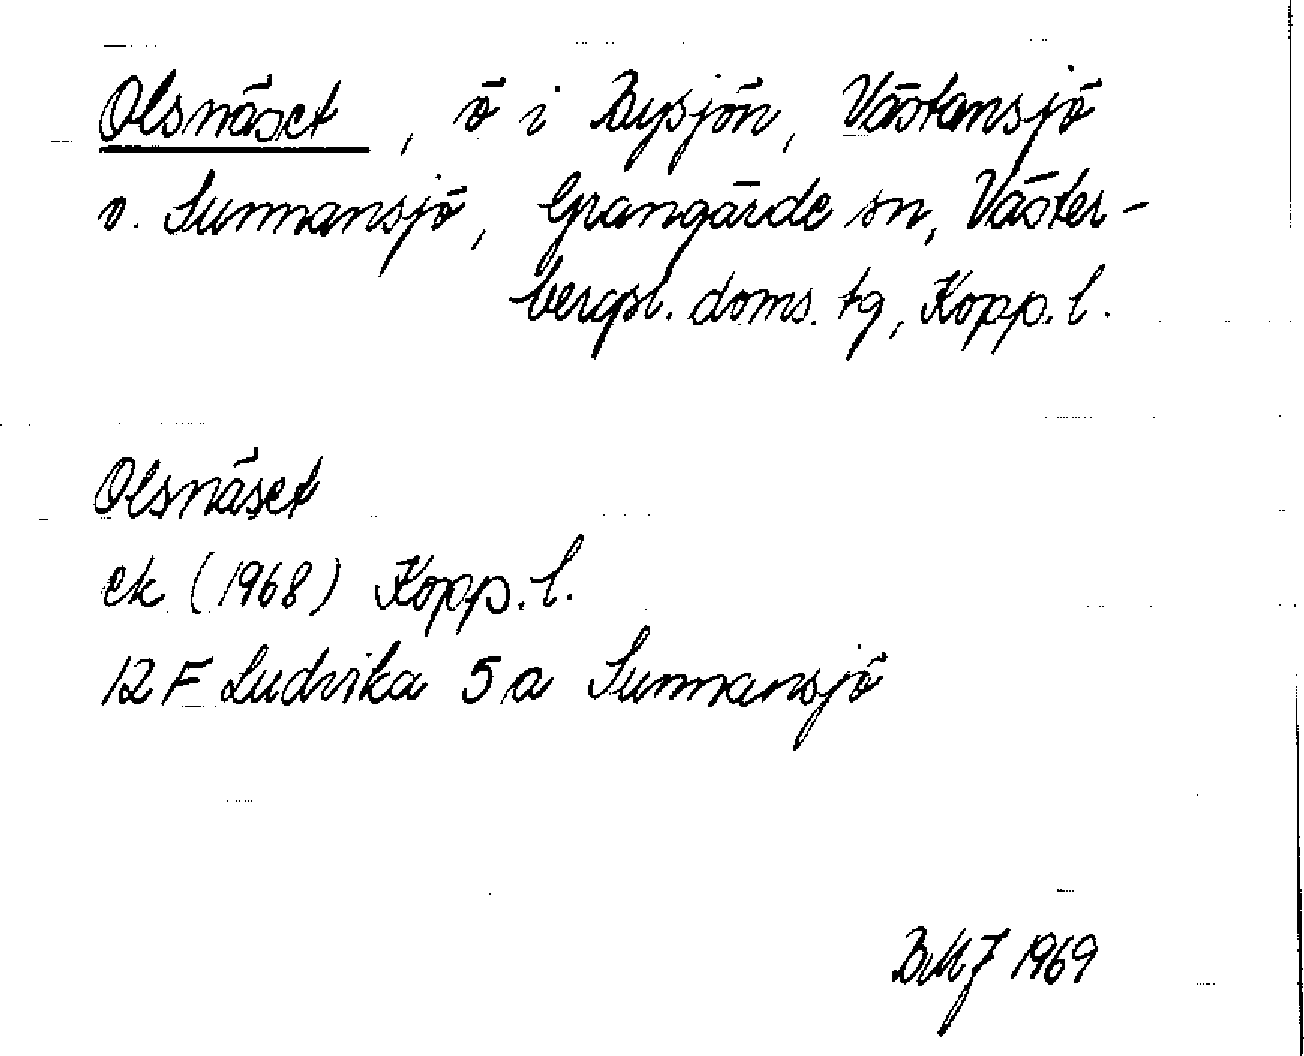 Olsnäset, ö i Bysjön, Västansjö
o. Sunnansjö, Grangärde sn, Väster-
bergsl. doms. tg, Kopp. l.
Olsnäset
ek (1968) Kopp. l.
12 F Ludvika 5 a Sunnansjö
BMJ 1969